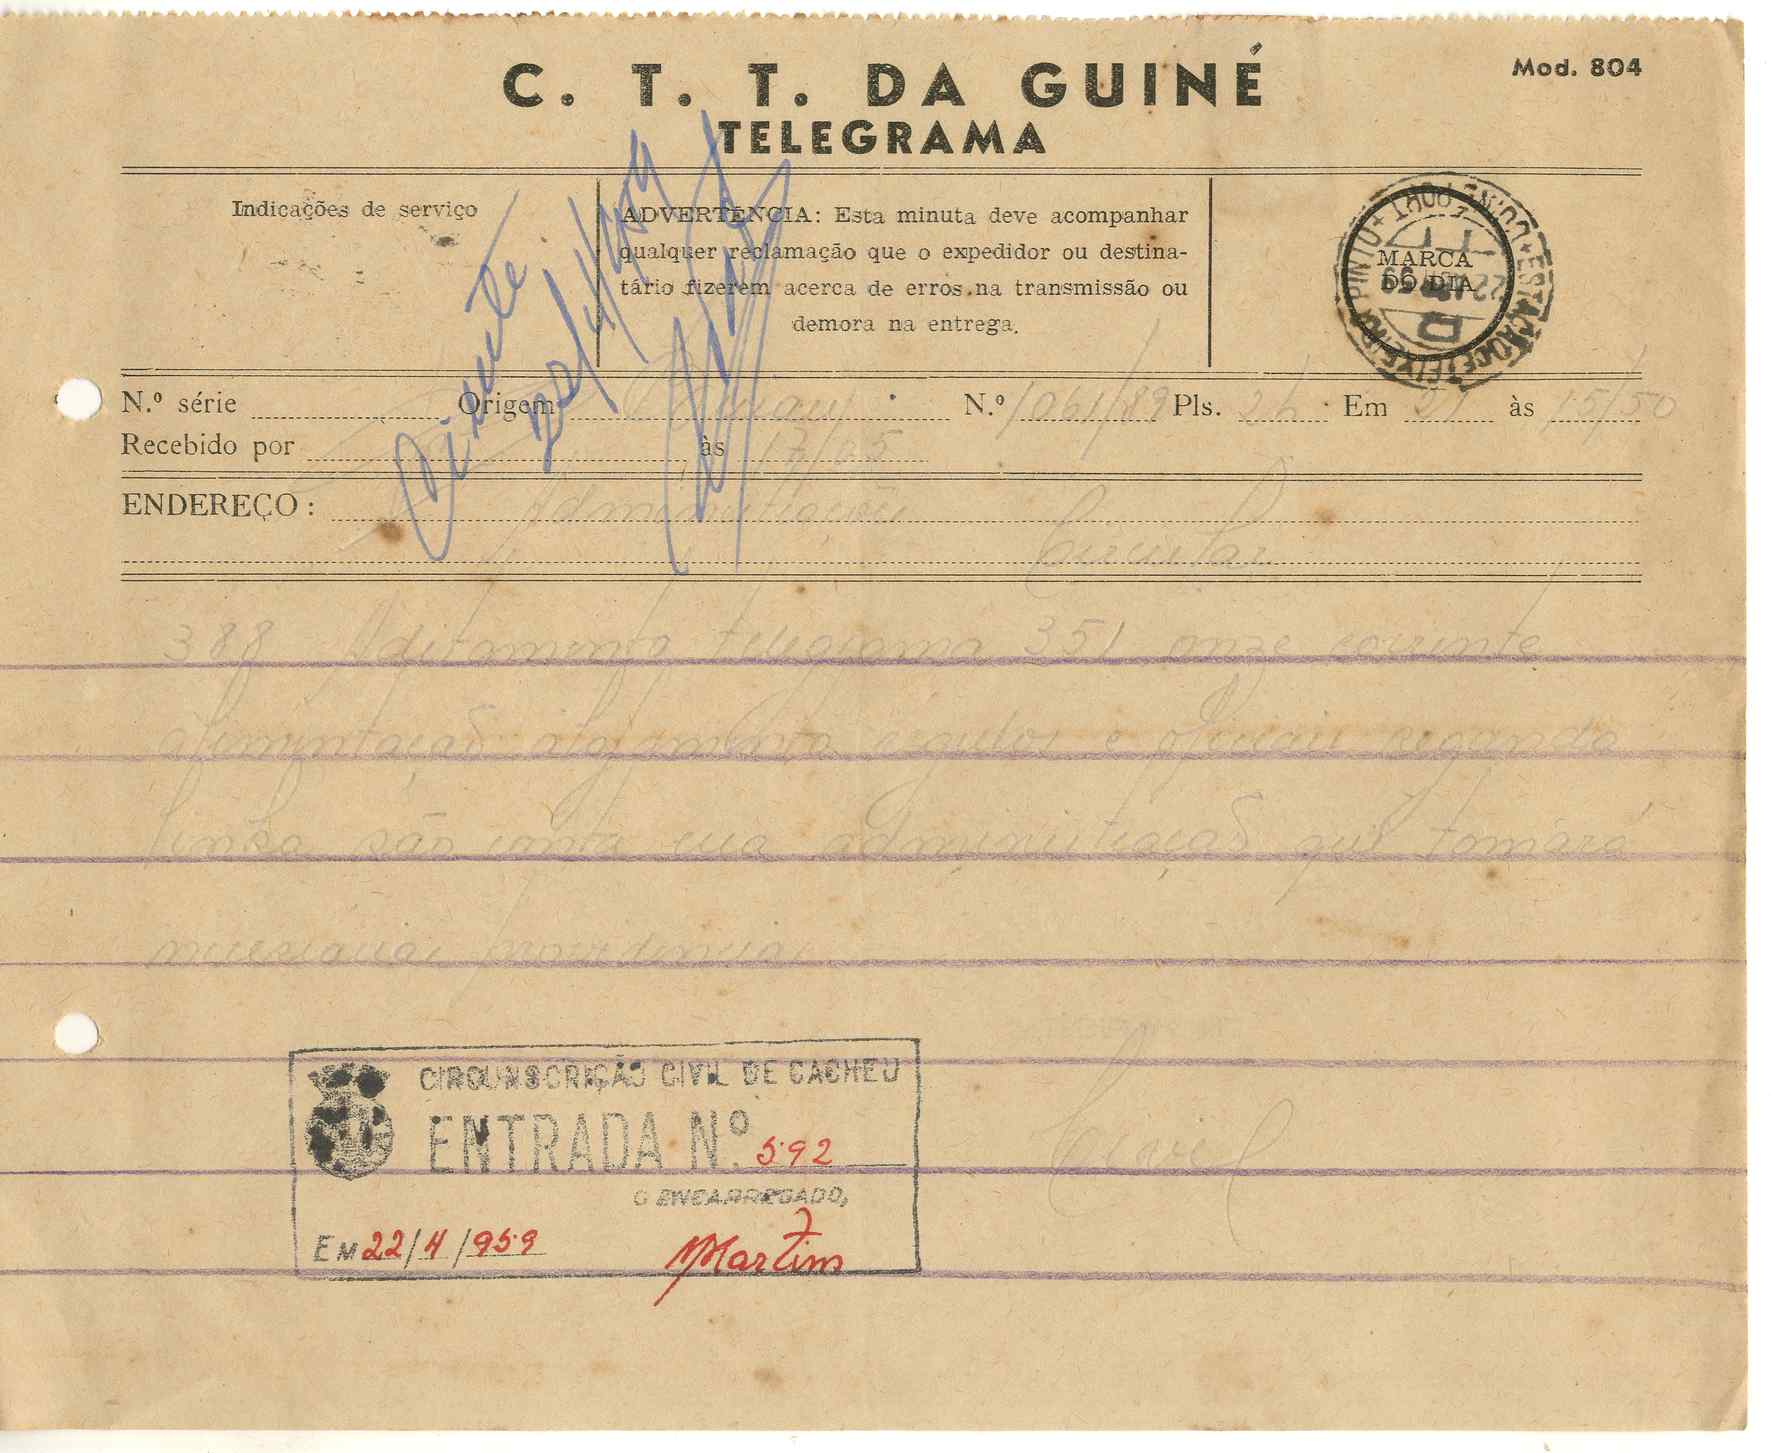 C. T. T. DA GUINÉ
Mod. 804
TELEGRAMA
Indicações de serviço
ADVERTÊNCIA: Esta minuta deve acompanhar
qualquer reclamação que o expedidor ou destina-
tário fizerem acerca de erros na transmissão ou
demora na entrega.
MARCA
DO DIA
ESTAÇÃO DE TEIXEIRA PINTO + GUINÉ PORT
Ciente
22/4/959
N.º série Origem Bissau N.º 1061/89 Pls. Em 21 às 15/50
Recebido por às 17/05
ENDEREÇO: Administração
Circular
388 Aditamento telegrama 351 onze corrente
alimentação alojamento régulos e oficiais segunda
linha são conta essa administração que tomará
necessárias providências
Civil
CIRCUNSCRIÇÃO CIVIL DE CACHEU
ENTRADA N.º 592
O ENCARREGADO,
EM 22/4/959 Martins